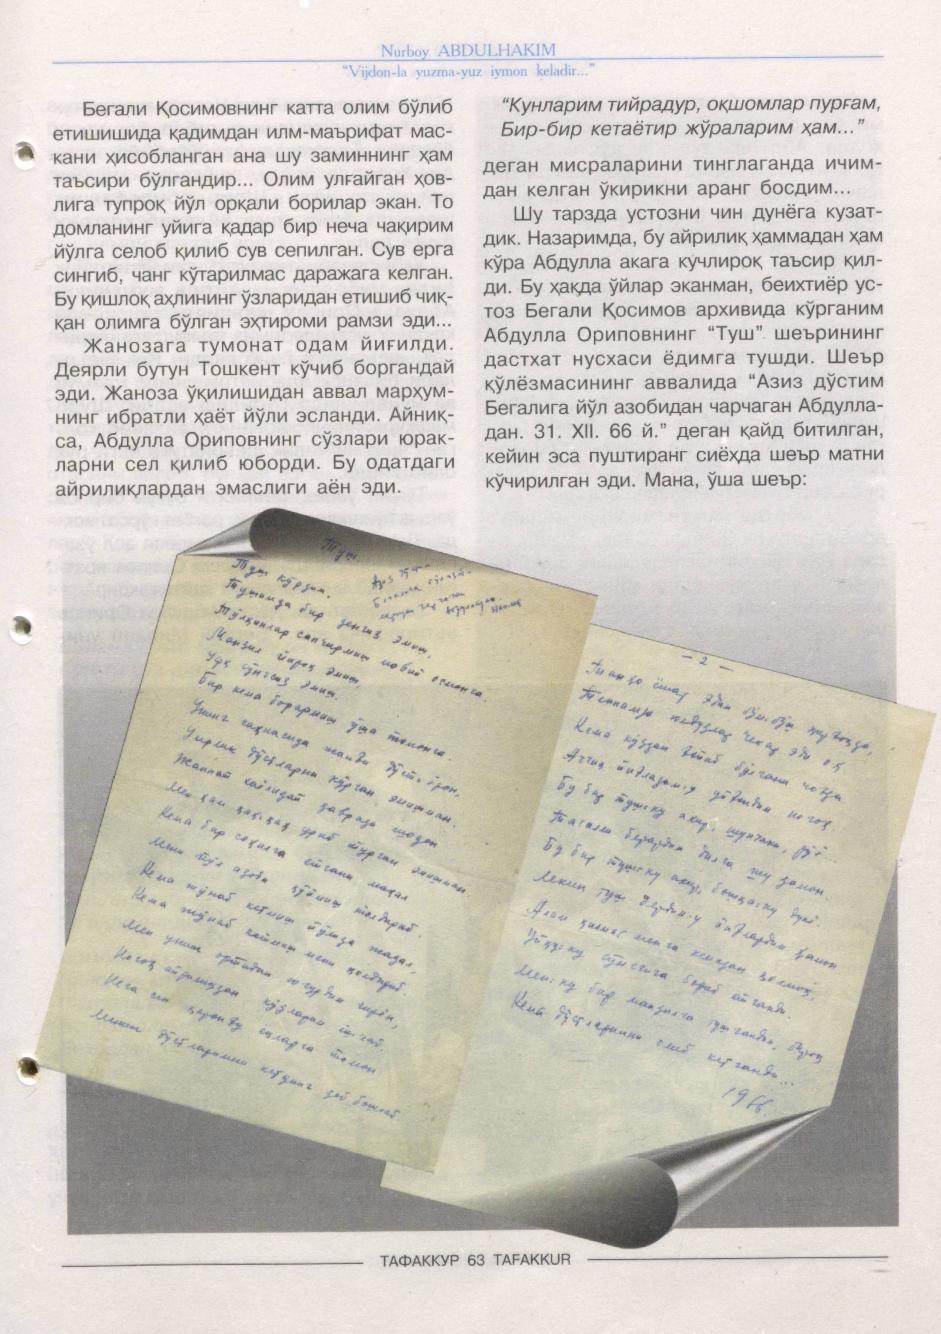 Nurboy ABDULHAKIM
“Vijdon-la yuzma-yuz iymon keladir...”
Бегали Қосимовнинг катта олим бўлиб
етишишида қадимдан илм-маърифат мас-
кани ҳисобланган ана шу заминнинг ҳам
таъсири бўлгандир... Олим улғайган ҳов-
лига тупроқ йўл орқали борилар экан. То
домланинг уйига қадар бир неча чақирим
йўлга селоб қилиб сув сепилган. Сув ерга
сингиб, чанг кўтарилмас даражага келган.
Бу қишлоқ аҳлининг ўзларидан етишиб чиқ-
қан олимга бўлган эҳтироми рамзи эди...
Жанозага тумонат одам йиғилди.
Деярли бутун Тошкент кўчиб боргандай
эди. Жаноза ўқилишидан аввал марҳум-
нинг ибратли ҳаёт йўли эсланди. Айниқ-
са, Абдулла Ориповнинг сўзлари юрак-
ларни сел қилиб юборди. Бу одатдаги
айрилиқлардан эмаслиги аён эди.
“Кунларим тийрадур, оқшомлар пурғам,
Бир-бир кетаётир жўраларим ҳам...”
деган мисраларини тинглаганда ичим-
дан келган ўкирикни аранг босдим...
Шу тарзда устозни чин дунёга кузат-
дик. Назаримда, бу айрилиқ ҳаммадан ҳам
кўра Абдулла акага кучлироқ таъсир қил-
ди. Бу ҳақда ўйлар эканман, беихтиёр ус-
тоз Бегали Қосимов архивида кўрганим
Абдулла Ориповнинг “Туш” шеърининг
дастхат нусхаси ёдимга тушди. Шеър
қўлёзмасининг аввалида “Азиз дўстим
Бегалига йўл азобидан чарчаган Абдулла-
дан. 31. XII. 66 й.” деган қайд битилган,
кейин эса пуштиранг сиёҳда шеър матни
кўчирилган эди. Мана, ўша шеър:
Туш.
Туш кўрдим.
Тушимда бир денгиз эмиш,
Тўлқинлар сапчирмиш мовий осмонга.
Манзил йироқ эмиш,
Уфқ сўнгсиз эмиш.
Бир кема борармиш ўша томонга.
Мен ҳам қаҳ-қаҳ уриб турган эмишман
Кема бир соҳилга етгани маҳал
Мени йўл азоби қўймиш толдириб.
Кема жўнаб кетмиш йўлига жадал,
Кема жўнаб кетмиш мени қолдириб.
Мен унинг ортидан югурдим гирён,
— 2 —
Кема кўздан ғойиб бўлгани чоғда
Бу бир тушку ахир, шунчаки, рўё...
Бу бир тушку ахир, бошқаку дунё.
Лекин туш
Кема дўстларимни олиб кетганди...
1966.
ТАФАККУР 63 TAFAKKUR